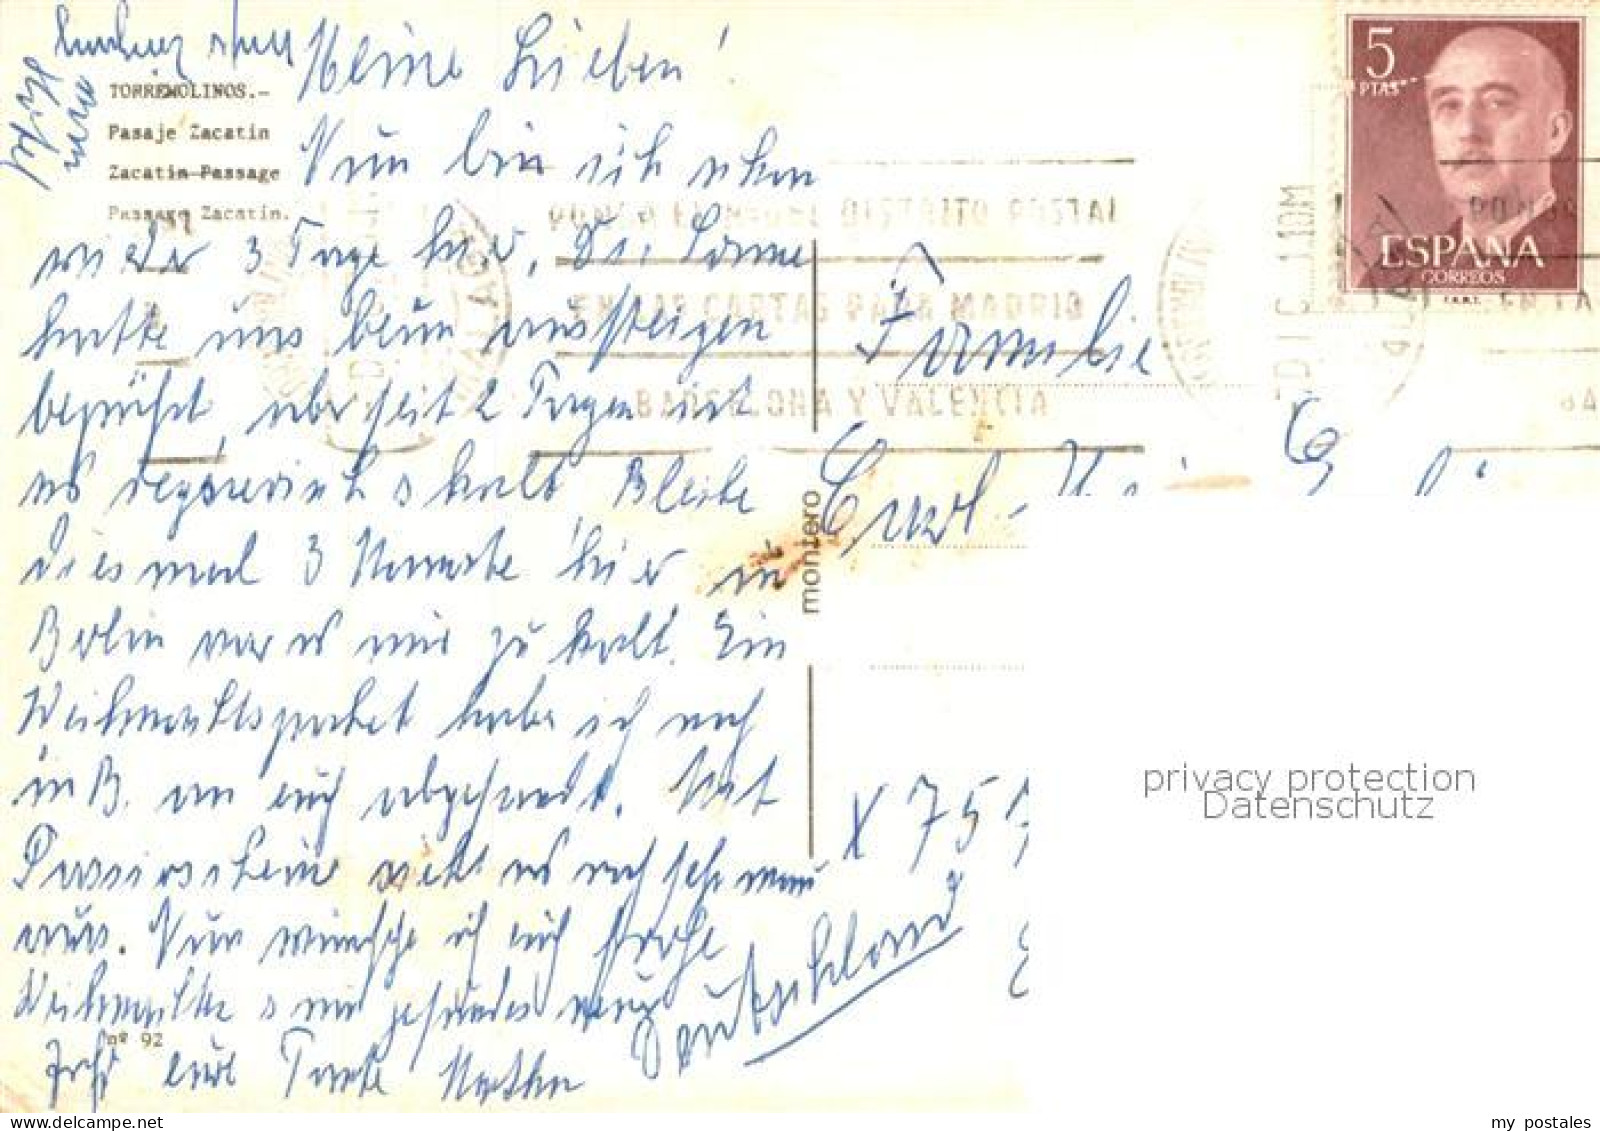 TORREMOLINOS.-
Pasaje Zacatin
Zacatin Passage
Passage Zacatin.
Meine Lieben!
Nun bin ich schon
wieder 3 Tage hier. Die Sonne
hatte uns beim aussteigen
begrüßt, aber seit 2 Tagen ist
es regnerisch & kalt. Bleibe
diesmal 3 Monate hier in
Berlin war es mir zu kalt. Ein
Weihnachtspaket habe ich noch
in B. an euch abgesandt. Mit
Passierscheine sieht es noch sehr mau
aus. Nun wünsche ich euch frohe
Weihnachten & ein gesundes neues
Jahr eure Tante
nº 92
montero
5
PTAS
ESPAÑA
CORREOS
MALAGA
DISTRITO POSTAL
EN LAS CARTAS PARA MADRID
BARCELONA Y VALENCIA
Familie
X 751
Deutschland
privacy protection
Datenschutz
my postales